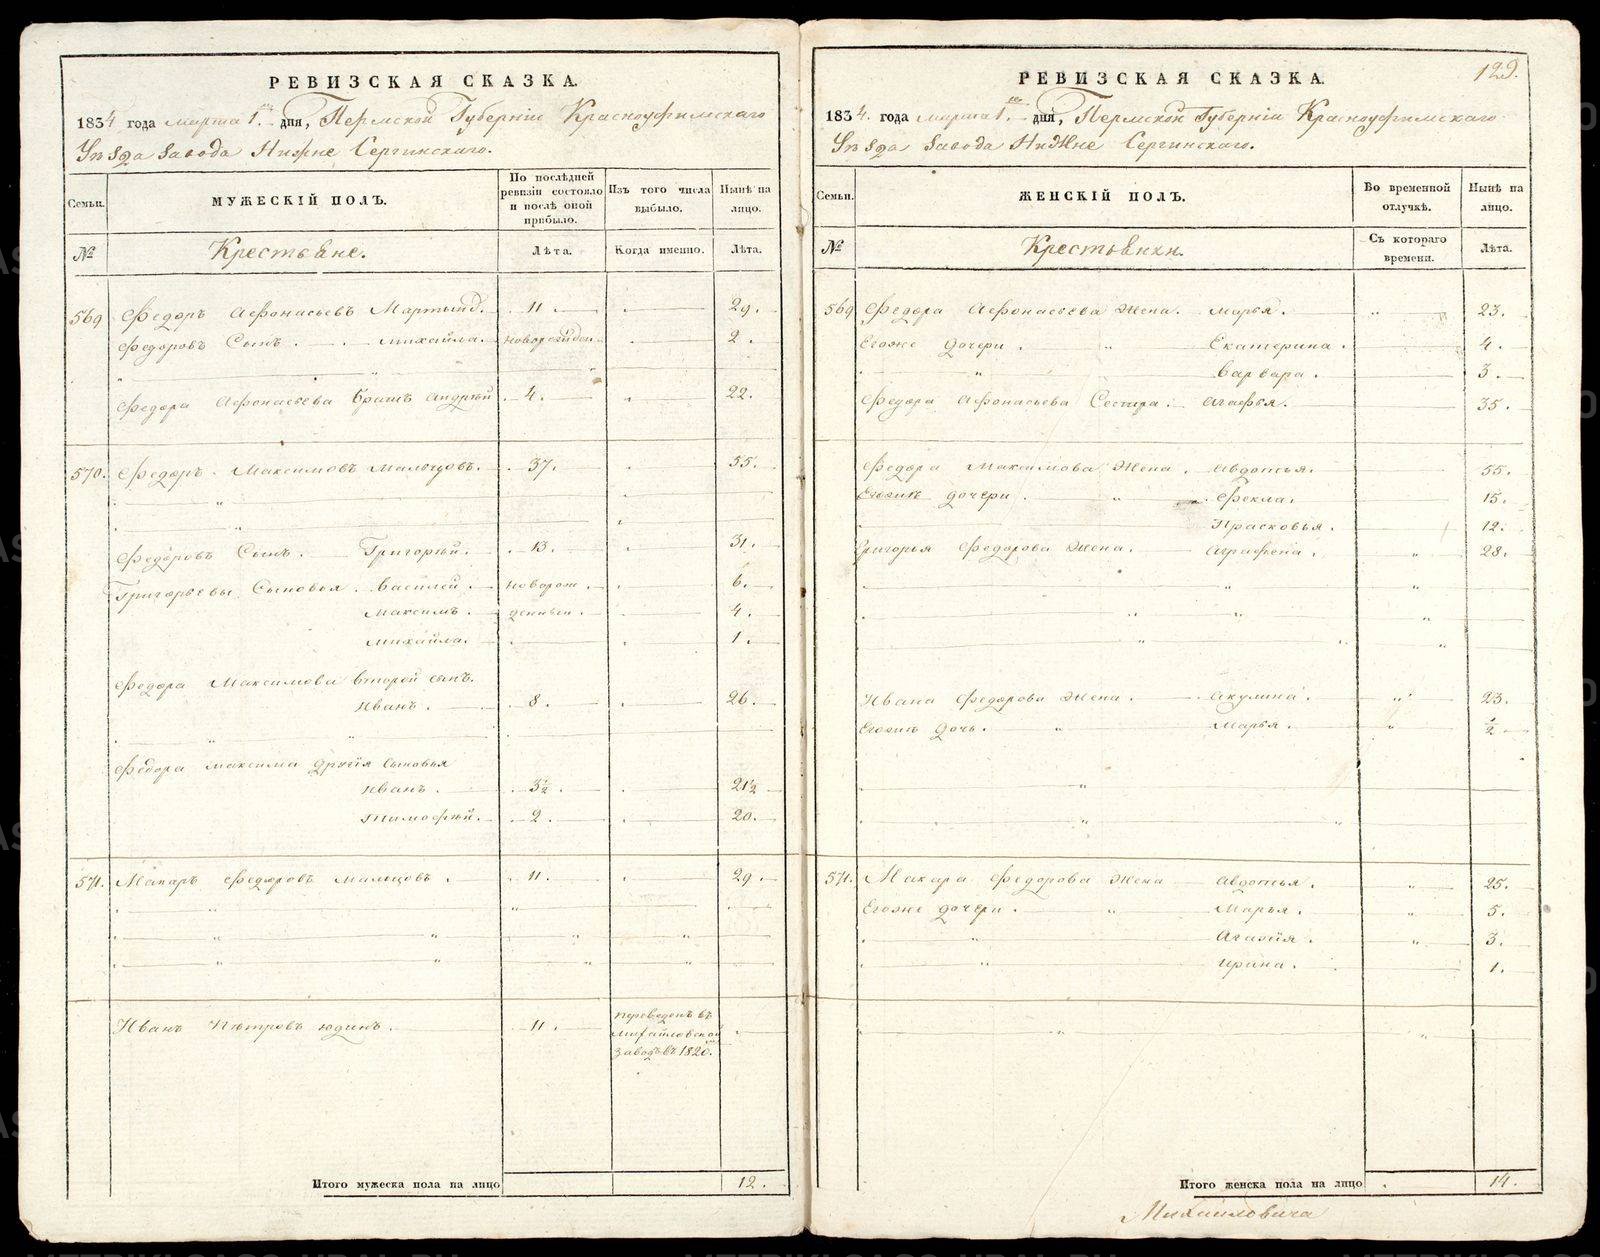 РЕВИЗСКАЯ СКАЗКА.
1834 года марта 1. дня, Пермской Губерніи Красноуфимскаго
Уѣзда Завода Нижне Сергинскаго.
Семьи.
МУЖЕСКІЙ ПОЛЪ.
По послѣдней ревизіи состояло и послѣ оной прибыло.
Изъ того числа выбыло.
Нынѣ на лицо.
№
Крестьяне.
Лѣта.
Когда именно.
Лѣта.
569 Федоръ Афонасьевъ 11. 29.
Федоровъ Сынъ. Михайла. 2.
Федора Афонасьева Братъ Андрѣй 4. 22.
570. Федоръ Максимовъ Мальцовъ. 37. 55.
Федоровъ Сынъ. Григорьй. 13. 31.
Григорьевы Сыновья. Василей. новорож 6.
Максимъ. денныи. 4.
Михайла. 1.
Федора Максимова второй сынъ.
Иванъ. 8. 26.
Федора Максима другія Сыновья
Иванъ. 3½. 21½
Тимофѣй. 2. 20.
571. Макаръ Федоровъ Мальцовъ. 11. 29.
Иванъ Пѣтровъ Юдинъ. 11. переведенъ въ
Михайловской
заводъ въ 1820.
Итого мужеска пола на лицо 12.
129.
РЕВИЗСКАЯ СКАЗКА.
1834. года марта 1. дня, Пермской Губерніи Красноуфимскаго
Уѣзда Завода Нижне Сергинскаго.
Семьи.
ЖЕНСКІЙ ПОЛЪ.
Во временной отлучкѣ.
Нынѣ на лицо.
№
Крестьянки.
Съ котораго времени.
Лѣта.
569 Федора Афонасьева Жена. Марья. 23.
Егоже дочери. Екатерина. 4.
Варвара. 3.
Федора Афонасьева Сестра. Агафья. 35.
Федора Максимова Жена. Авдотья. 55.
дочери. Фекла. 15.
Прасковья. 12.
Григорья Федорова Жена. Аграфена. 28.
Ивана Федорова Жена. Акулина. 23.
дочь. Марья. ½
571. Макара Федорова Жена Авдотья. 25.
Егоже дочери. Марья. 5.
3.
Ирина. 1.
Итого женска пола на лицо 14.
Михайловича